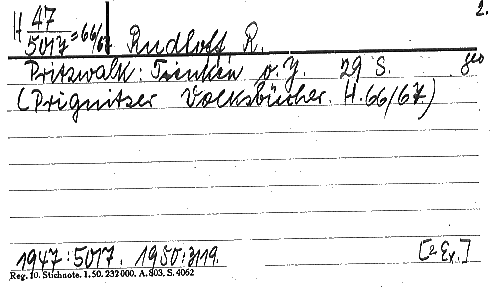 H 47/5017=66/67 Rudloff, R. 2.
Pritzwalk: Tienken o.J. 29 S. geo
(Prignitzer Volksbücher. H.66/67)
1947:5017. 1950:3119. [2 Ex.]
Reg. 10. Stichnote. 1.50. 232000. A. 803. S. 4062